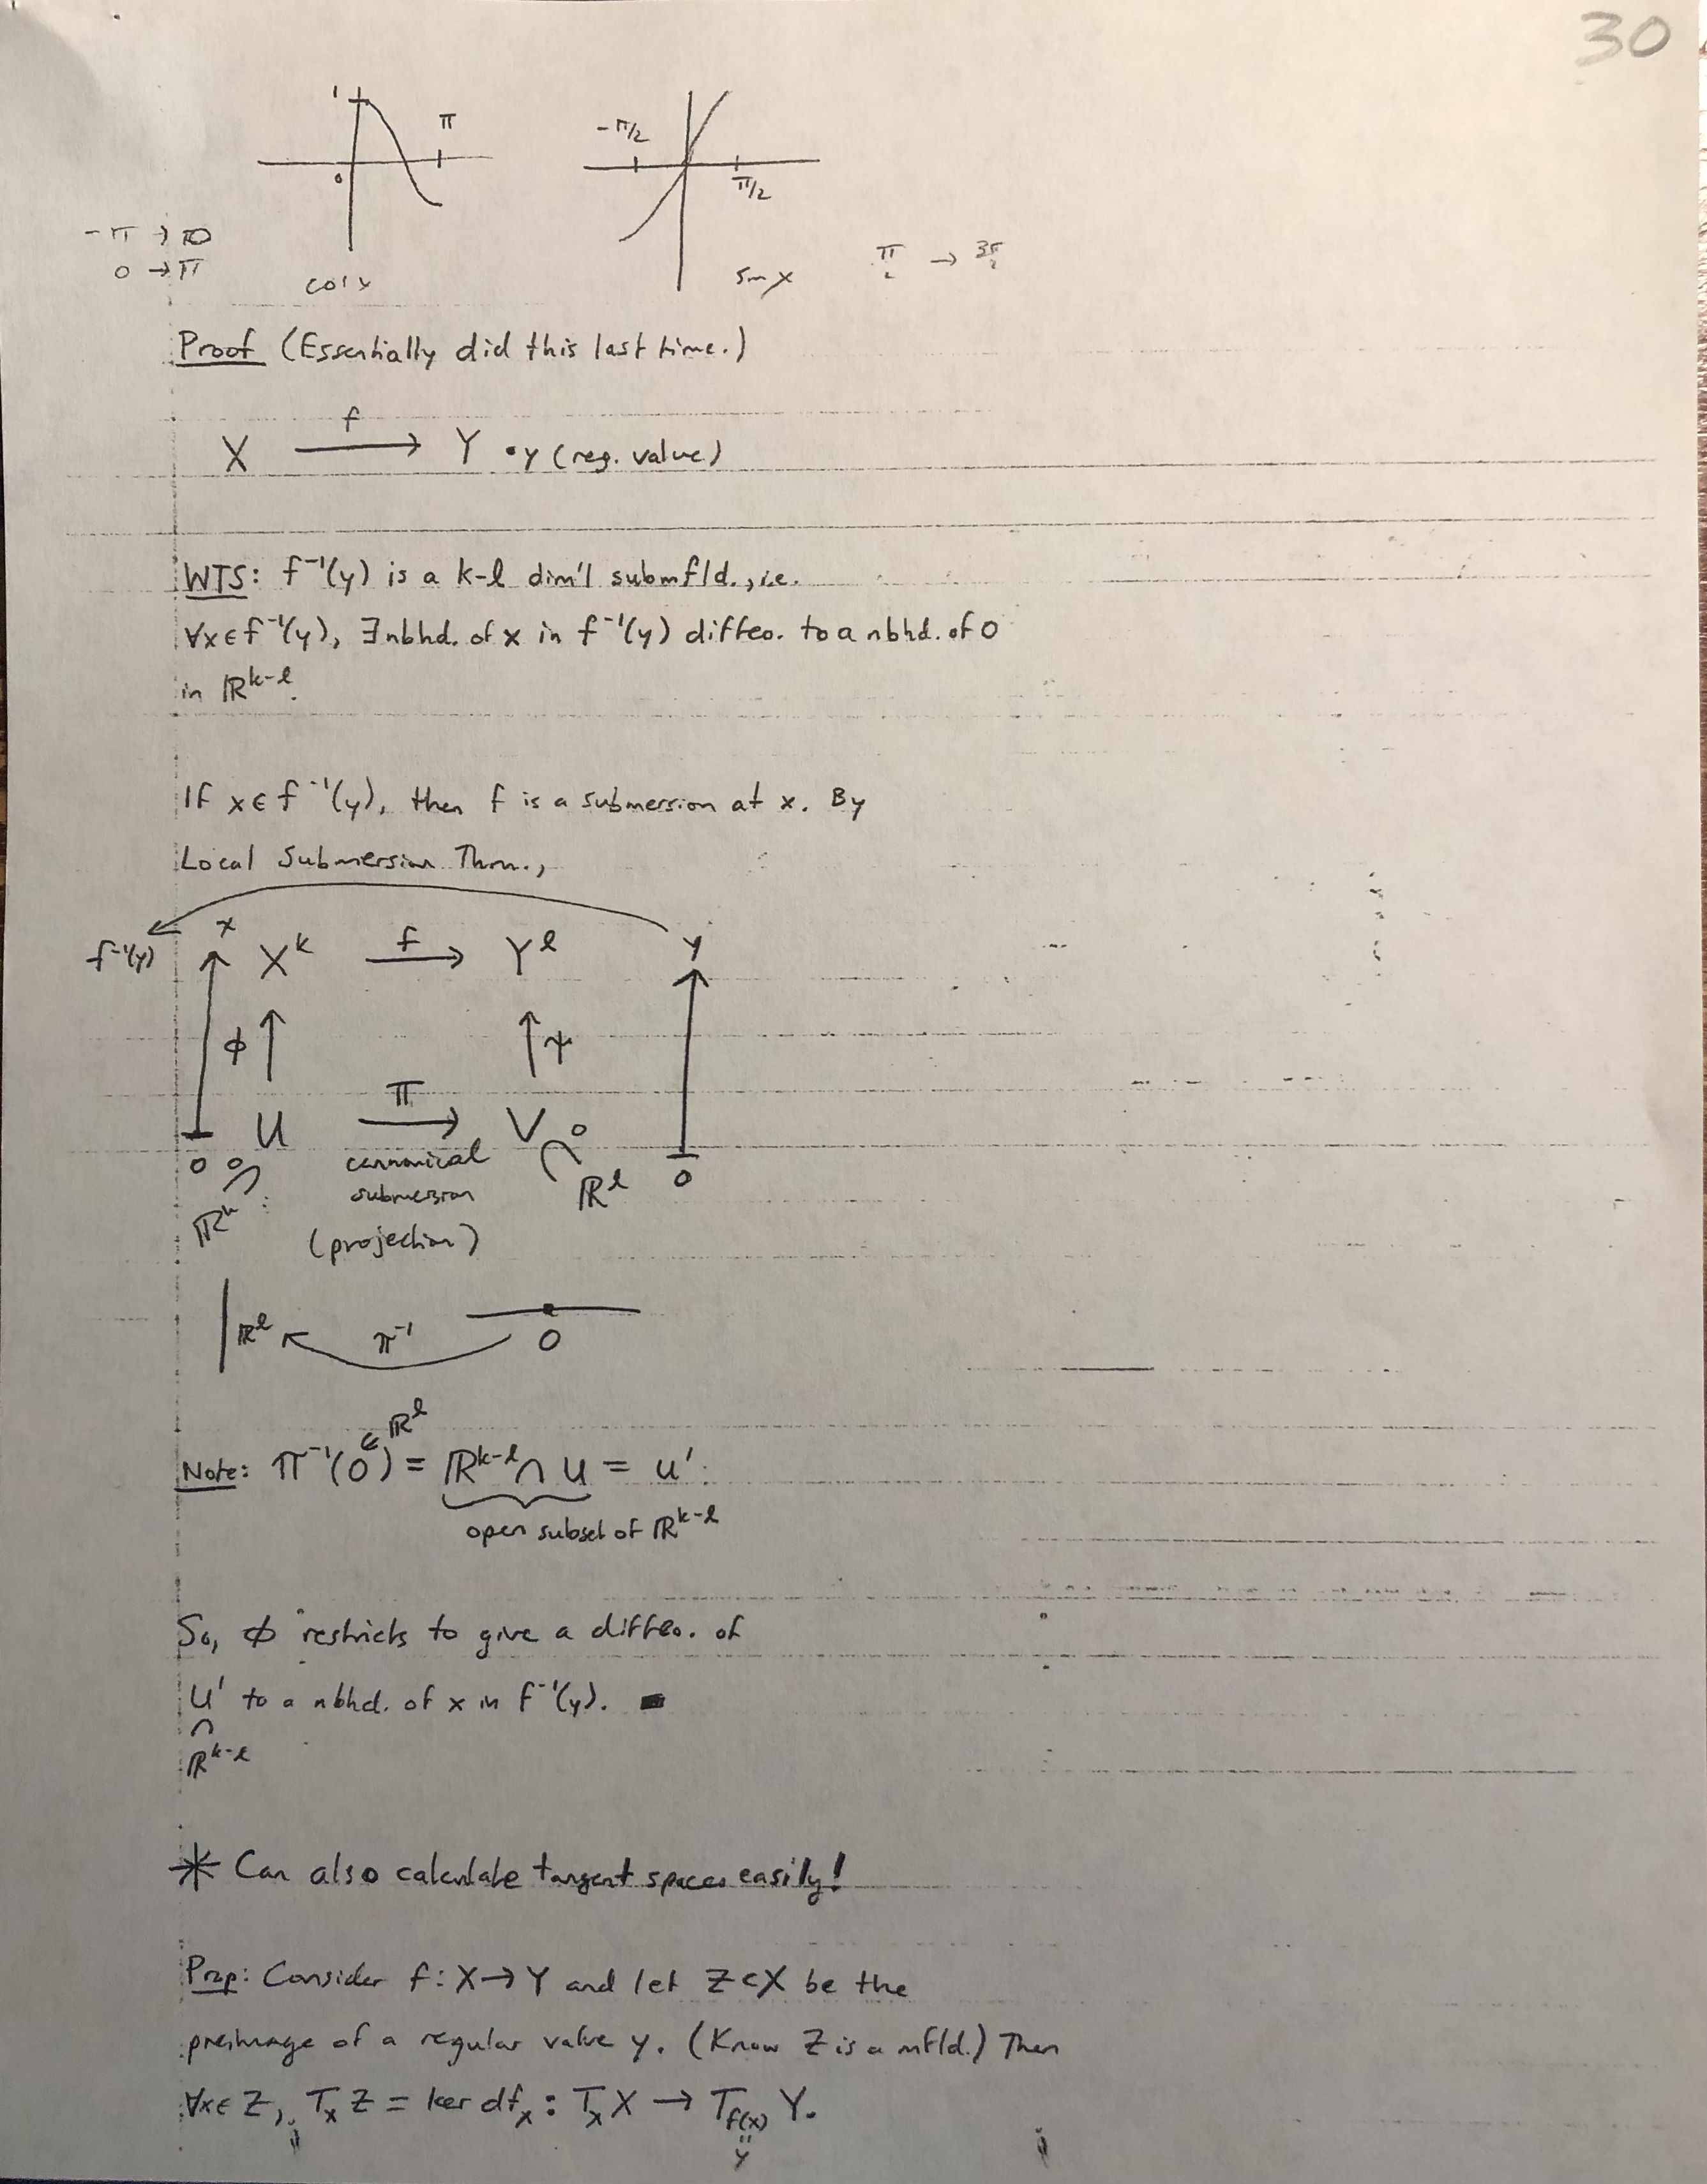 30
1
π
-π/2
0
π/2
-π → π0
0 → π
cos x
sin x
π/2 → 3π/2
Proof (Essentially did this last time.)
X →f Y • y (reg. value)
WTS: f⁻¹(y) is a k-l dim'l submfld., i.e.
∀x∈f⁻¹(y), ∃nbhd. of x in f⁻¹(y) diffeo. to a nbhd. of 0
in ℝᵏ⁻ˡ.
If x∈f⁻¹(y), then f is a submersion at x. By
Local Submersion Thm.,
f⁻¹(y) x Xᵏ →f Yˡ y
ϕ ↑ ↑ ψ
U →π V 0
0 0 canonical ℝˡ 0
ℝᵏ submersion
(projection)
ℝˡ π⁻¹ 0
∈ ℝˡ
Note: π⁻¹(0) = ℝᵏ⁻ˡ ∩ U = U'.
open subset of ℝᵏ⁻ˡ
So, ϕ restricts to give a diffeo. of
U' to a nbhd. of x in f⁻¹(y). ■
∩
ℝᵏ⁻ˡ
* Can also calculate tangent spaces easily!
Prop: Consider f: X→Y and let Z⊂X be the
preimage of a regular value y. (Know Z is a mfld.) Then
∀x∈Z, TₓZ = ker dfₓ : TₓX → T_f(x) Y.
=
y